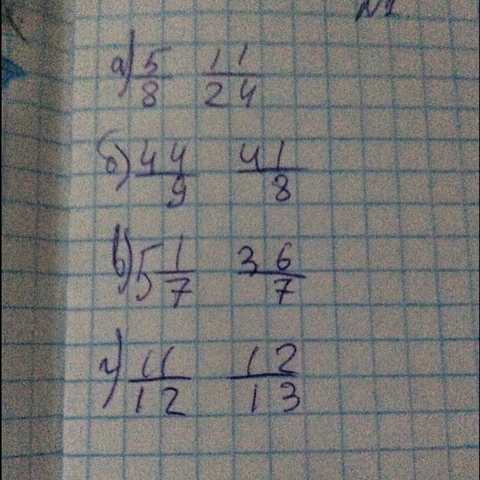 №1
а) 5/8 11/24
б) 4 4/9 4 1/8
в) 5 1/7 3 6/7
г) 11/12 12/13